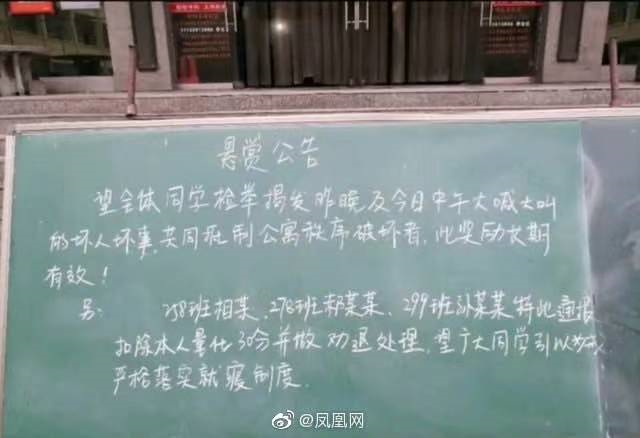 悬赏公告
望全体同学检举揭发昨晚及今日中午大喊大叫
的坏人坏事,共同抵制公寓秩序破坏者,此奖励长期
有效!
另: 258班相某、278班郝某某、299班孙某某特此通报
扣除本人量化30分并做劝退处理,望广大同学引以为戒
严格落实就寝制度.
@凤凰网